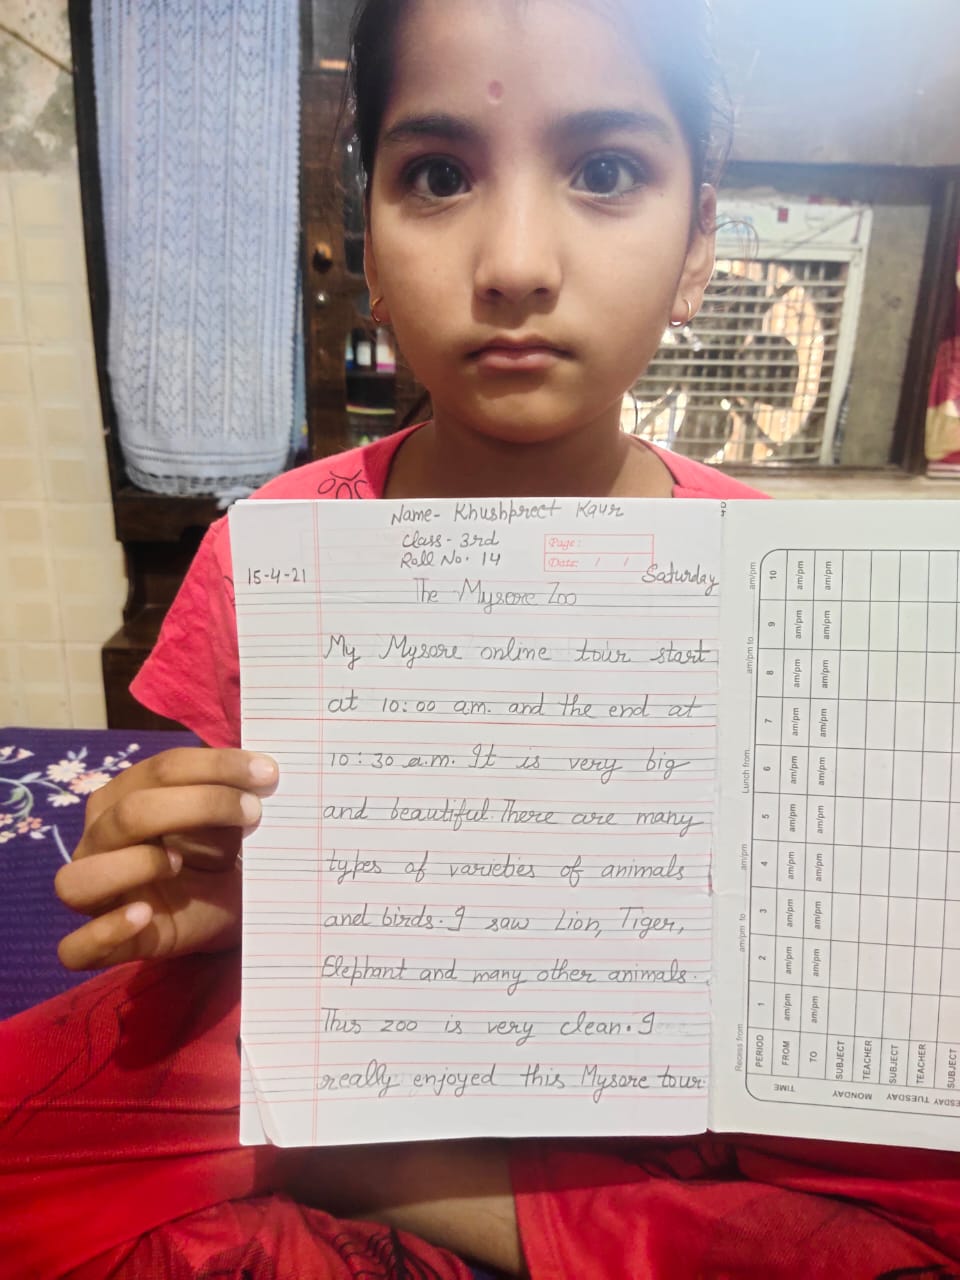 Name- Khushpreet Kaur
Class- 3rd
Roll No. 14
Page:
Date: / /
15-4-21
Saturday
The Mysore Zoo
My Mysore online tour start
at 10:00 a.m. and the end at
10:30 a.m. It is very big
and beautiful. There are many
types of varieties of animals
and birds. I saw Lion, Tiger,
Elephant and many other animals.
This zoo is very clean. I
really enjoyed this Mysore tour.
Recess from am/pm to am/pm Lunch from am/pm to am/pm
PERIOD 1 2 3 4 5 6 7 8 9 10
TIME
FROM am/pm am/pm am/pm am/pm am/pm am/pm am/pm am/pm am/pm am/pm
TO am/pm am/pm am/pm am/pm am/pm am/pm am/pm am/pm am/pm am/pm
MONDAY
SUBJECT
TEACHER
TUESDAY
SUBJECT
TEACHER
SUBJECT